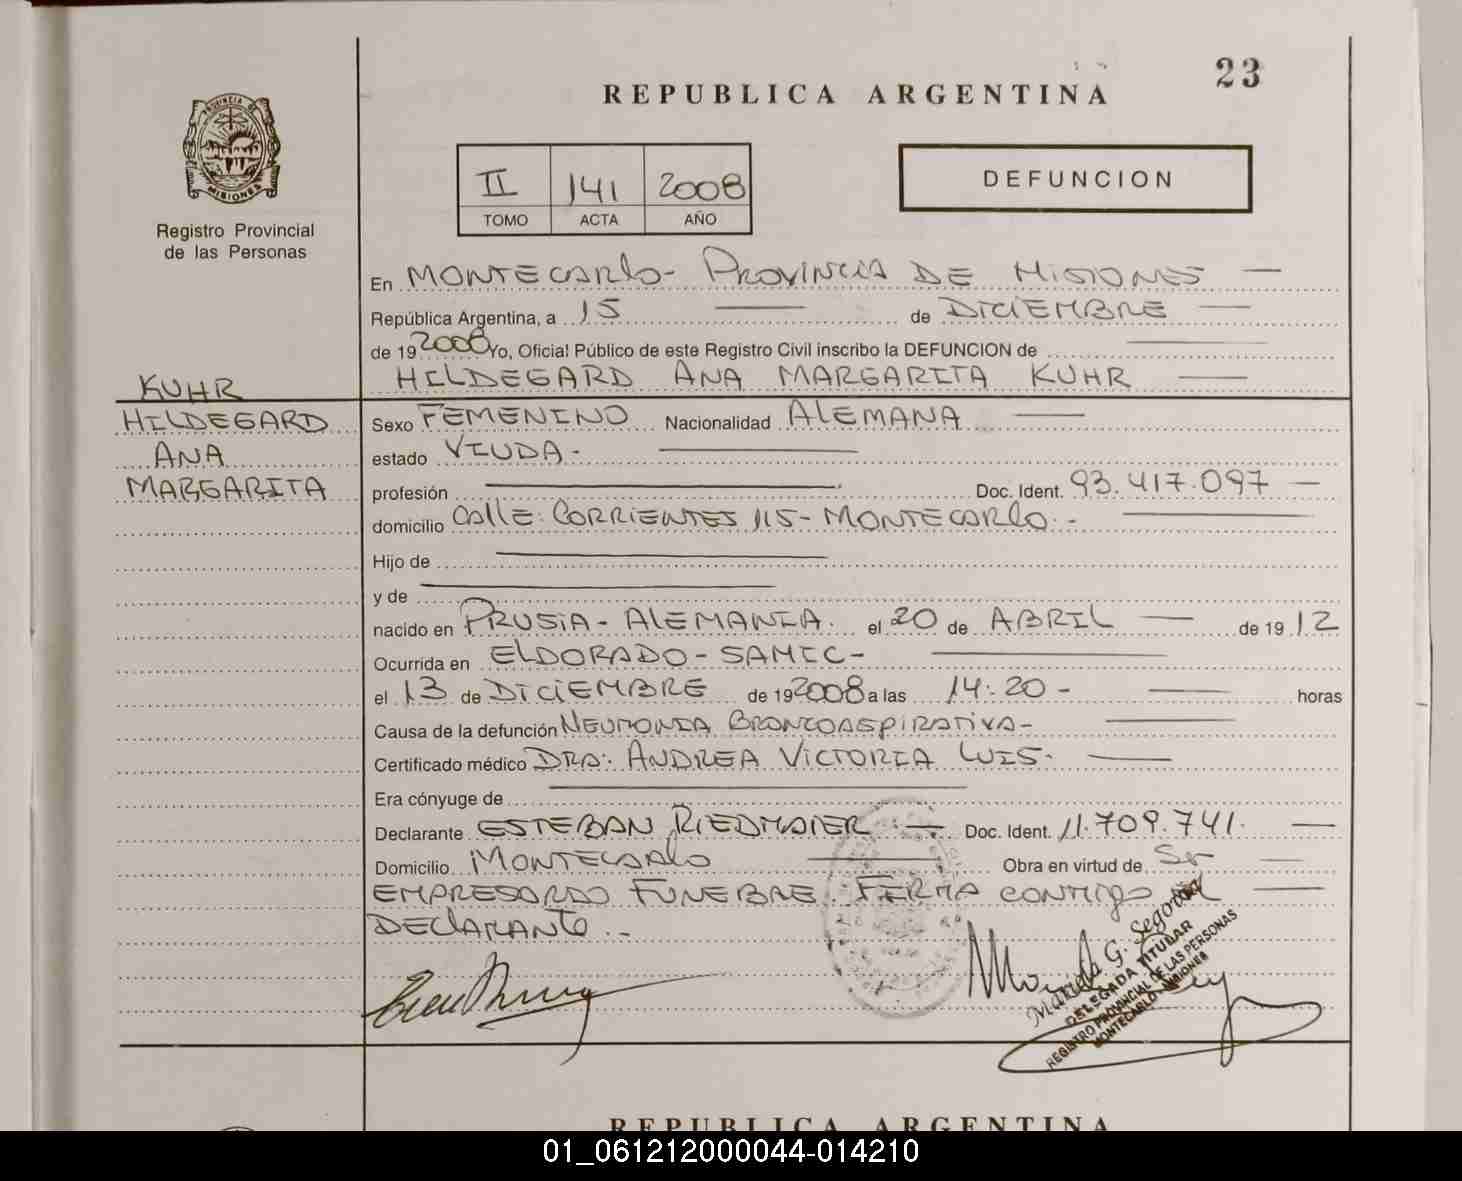 23
REPUBLICA ARGENTINA
PROVINCIA DE MISIONES
Registro Provincial
de las Personas
II 141 2008
TOMO ACTA AÑO
DEFUNCION
En MONTECARLO - PROVINCIA DE MISIONES
República Argentina, a 15 de DICIEMBRE
de 19 2008 Yo, Oficial Público de este Registro Civil inscribo la DEFUNCION de
HILDEGARD ANA MARGARITA KUHR
KUHR
HILDEGARD
ANA
MARGARITA
Sexo FEMENINO Nacionalidad ALEMANA
estado VIUDA.-
profesión Doc. Ident. 93.417.097
domicilio CALLE: CORRIENTES 115 - MONTECARLO.-
Hijo de
y de
nacido en PRUSIA - ALEMANIA. el 20 de ABRIL de 19 12
Ocurrida en ELDORADO - SAMIC -
el 13 de DICIEMBRE de 19 2008 a las 14:20 - horas
Causa de la defunción NEUMONIA BRONCOASPIRATIVA -
Certificado médico DRA: ANDREA VICTORIA LUIS.
Era cónyuge de
Declarante ESTEBAN RIEDMAIER Doc. Ident. 11.709.741.
Domicilio MONTECARLO Obra en virtud de Sr
EMPRESARIO FUNEBRE. FIRMA CONMIGO el
DECLARANTE.-
G. Segovia
DELEGADA TITULAR
REGISTRO PROVINCIAL DE LAS PERSONAS
MONTECARLO - MISIONES
REPUBLICA ARGENTINA
01_061212000044-014210